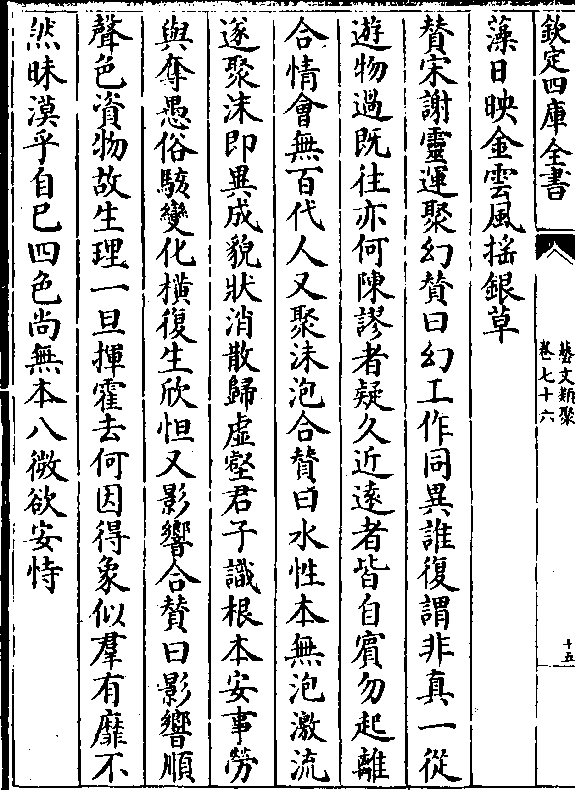 欽定四庫全書
藝文類聚
卷七十六
十五
藻日映金雲風揺銀草
賛宋謝靈運聚幻賛曰幻工作同異誰復謂非真一從
遊物過既往亦何陳謬者疑久近逺者皆自賓勿起離
合情會無百代人又聚沫泡合賛曰水性本無泡激流
遂聚沫即異成貌狀消散歸虚壑君子識根本安事勞
與奪愚俗駭變化横復生欣怛又影響合賛曰影響順
聲色資物故生理一旦揮霍去何因得象似羣有靡不
然昧漠乎自已四色尚無本八微欲安恃